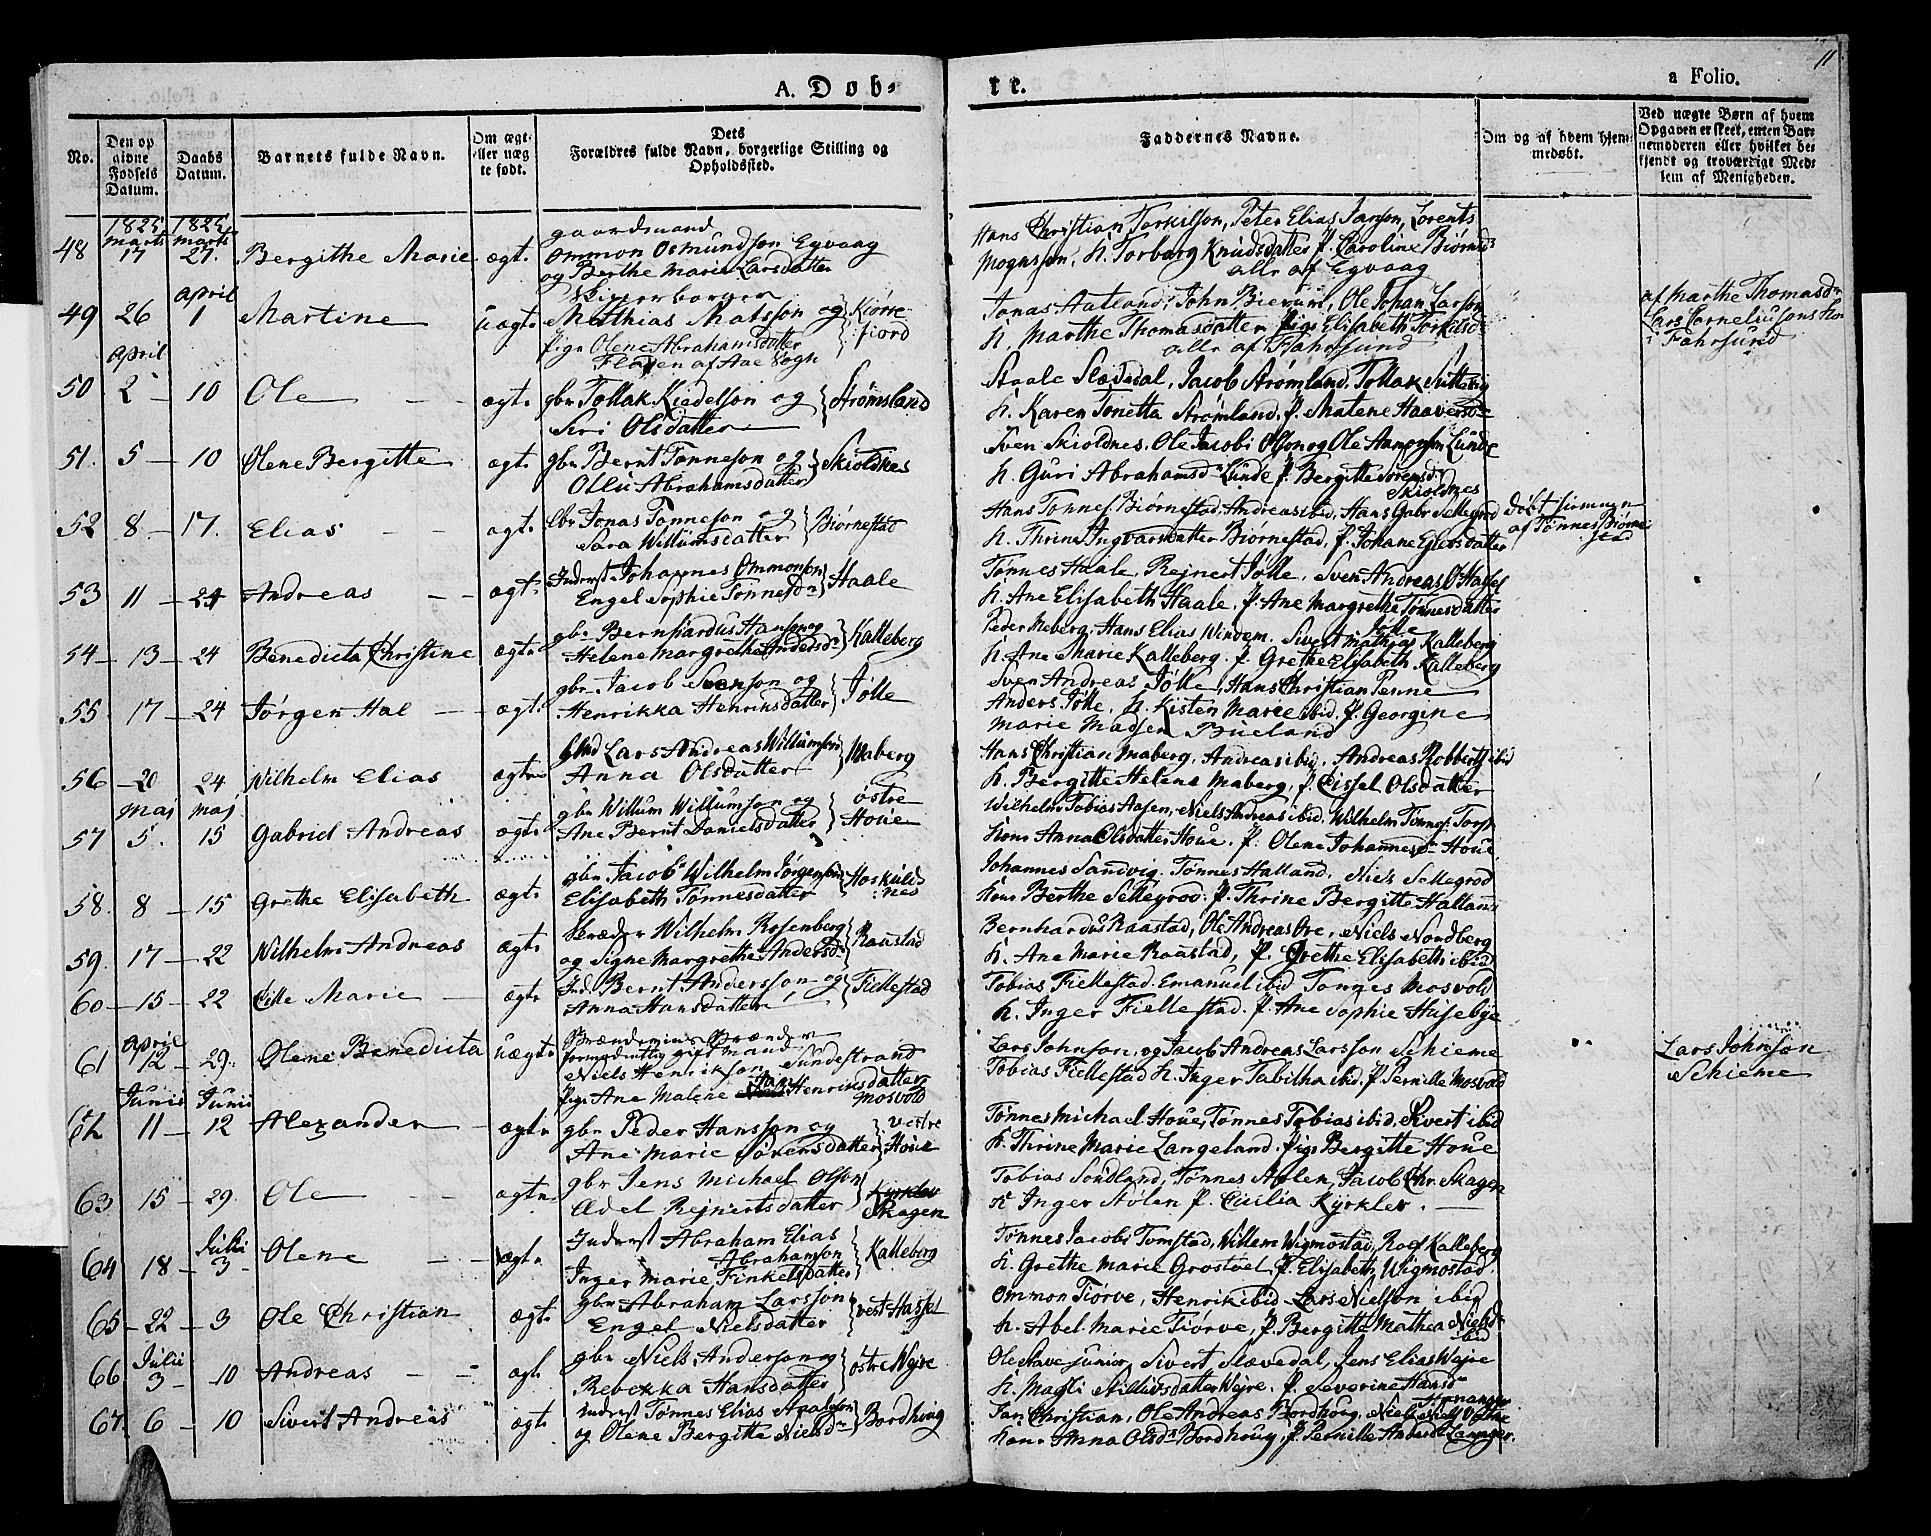 11
A. Døb-
te.
a Folio.
No.
Den op
givne
Fødsels
Datum.
Daabs
Datum.
Barnets fulde Navn.
Om ægt-
eller uæg
te født.
Dets
Forældres fulde Navn, borgerlige Stilling og
Opholdssted.
Faddernes Navne.
Om og af hvem hjem-
medøbt.
Ved uægte Børn af hvem
Opgaven er skeet, enten Bar-
nemoderen eller hvilket be-
kjendt og troværdigt Med-
lem af Menigheden.
1825 1825
48 Marts 17 Marts 27. Bergithe Marie ægt.
gaardmand
Ommon Osmundson Egvaag
og Berthe Marie Larsdatter
Hans Christian Torkilson, Peter Elias Janson, Lorents
Mognsson, K. Torborg Knudsdatter P. Caroline Biørnd
alle af Egvaag
49 26 April 1 Martine uægt.
Mathias Matsson og Kiørre-
fiord
Pige Olene Abrahamsdatter
Fladen af Aae Sogn
Jonas Aatland, John Bierum, Ole Johan Larson
K. Marthe Thomasdatter Pige Elisabeth Torkilsd
alle af Fahrsund
af Marthe Thomasdr
Lars Corneliusons Kone
i Fahrsund
50 April 2 - 10 Ole ægt.
gbr Tollak Kiedelson og Strømsland
Siri Olsdatter
Staale Slædedal, Jacob Strømland, Tollak
K. Karen Tonetta Strømland. P. Malene
51. 5 - 10 Olene Bergitte ægt.
gbr Bernt Tønneson og Skioldnes
Olli Abrahamsdatter
Sven Skioldnes. Ole Jacobi Olson og Ole Lunde
K. Guri Abrahamsdr Lunde P. Bergitte Sørensd
Skioldnes
52 8 - 17. Elias ægt.
gbr Jonas Tønneson og Biørnestad
Sara Willumsdatter
Hans Tønnes Biørnestad, Andreas ibid, Hans Gabr Sellegrod
K. Thrine Ingvarsdatter Biørnestad, P. Johane Elersdatter
Døbt
af Tønnes Biørne
stad
53 11 - 24 Andreas ægt.
Inderst Johannes Ommonson Haale
Engel Sophie Tønnesdr
Tønnes Haale, Rejnert Jølle. Sven Andreas O. Hassel
K. Ane Elisabeth Haale, P. Ane Margrethe Tønnesdatter
Jølle
54 - 13 - 24 Benedicta Christine ægt.
gbr Bernhardus Hanson og Kalleberg
Helene Margrethe Andersdr
Peder Meberg. Hans Elias Windem. Sivert Mathias Kalleberg
K. Ane Marie Kalleberg. P. Grethe Elisabeth Kalleberg
55. 17 - 24 Jørgen Hal ægt.
gbr Jacob Svenson og Jølle
Henrikka Henriksdatter
Sven Andreas Jølle, Hans Christian Penne
Anders Jølle. K. Kisten Marie ibid. P. Georgine
Marie Madsen Bueland
56 - 20 24 Wilhelm Elias ægt.
Lars Andreas Willumson Maberg
Anna Olsdatter
Hans Christian Maberg. Andreas ibid. Andreas Robberts ibid
K. Bergitte Helene Maberg, P. Sissel Olsdatter
57 Maj 5. Maj 15 Gabriel Andreas ægt.
gbr Willum Willumson og østre
Houe
Ane Bernt Danielsdatter
Wilhelm Tobias Aasen, Niels Andreas ibid. Wilhelm Tønnes
Kone Anna Olsdatter Houe. P. Olene Johannesdr Houe
58. 8 - 15 Grethe Elisabeth ægt.
gbr Jacob Wilhelm Jørgenson Hoskulds-
nes
Elisabeth Tønnesdatter
Johannes Sandvig. Tønnes Halland. Niels Sellegrod
Kone Berthe Sellegrod. P. Thrine Bergitte Halland
59. 17 - 22 Wilhelm Andreas ægt.
Skræder Wilhelm Rosenberg Raastad
og Signe Margrethe Andersdr
Bernhardus Raastad, Ole Andreas Ore, Niels Nordberg
K. Ane Marie Raastad, P. Grethe Elisabeth ibid
60 - 15 - 22 Cille Marie ægt.
Ind. Bernt Andersson og Fiellestad
Anna Hansdatter
Tobias Fiellestad. Emanuel ibid Tønnes Mosvold
K. Inger Fiellestad. P. Ane Sophie Husebye
61 April 12 - 29. Olene Benedicta uægt.
formodentlig gift mand
Niels Henrikson Sundestrand
Pige Ane Malene Henriksdatter
Mosvold
Lars Johnson, og Jacob Andreas Larsson Schieme
Tobias Fiellestad K. Inger Tabitha ibid. P. Pernille Mosvold
Lars Johnson
Schieme
62 Junii 11 - Junii 12 Alexander ægt.
gbr Peder Hansson og vestre
Houe
Ane Marie Sørensdatter
Tønnes Michael Houe, Tønnes Tobias ibid. Sivert ibid
K. Thrine Marie Langeland. Pige Bergitte Houe
63 15 - 29. Ole ægt.
gbr Jens Michael Olson Kyrklev
Skagen
Ædel Rejnertsdatter
Tobias Sundland, Tønnes Stølen, Jacob Chr. Skagen
K Inger Stølen P. Cicilia Kyrklev.
64 18 - Julii 3 - Olene ægt.
Inderst Abraham Elias
Abrahamson Kalleberg
Inger Marie Finkelsdatter
Tønnes Jacobi Tomstad, Willem Wigmostad, Roel Kalleberg
K. Grethe Marie Grostøel, P. Elisabeth Wigmostad.
65 - 22 - 3 Ole Christian ægt.
gbr Abraham Larsson vest Hassel
Engel Nielsdatter
Ommon Tiørve, Henrik ibid Lars Nielson ibid
K. Abel Marie Tiørve, P. Bergitte Mathea Nielsdr
ibid
66 Julii 3 - 10 Andreas ægt.
gbr Niels Anderson og østre Wejre
Rebekka Hansdatter
Ole Stave junior, Sivert Slævedal, Jens Elias Wejre
K. Magli Wejre. P. Severine Hansdr
67. 6 - 10 Sivert Andreas ægt.
Inderst Tønnes Elias Bordhoug
og Olene Bergitte Nielsdr
Jan Christian, Ole Andreas Bordhoug, Niels
Kone Anna Olsdr Bordhoug, P. Pernille